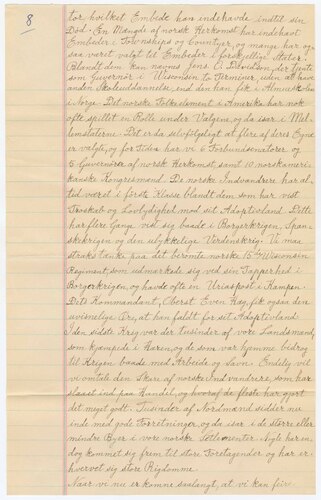 8
tor, hvilket Embede han indehavde indtil sin
Död. En Mangde af norsk Herkomst har indehavt
Embeder i Townships og Countyer, og mange har og-
saa varet valgt til Embeder i forskjellige Stater.
Blandt dem maa navnes Jens O. Davidson, der tjente
som Guvernör i Wisconsin to Terminer, uden at have
anden Skoleuddannelse, end den han fik i Almueskolen
i Norge. Det norske Folkeelement i Amerika har nok
ofte spillet en Rolle under Valgene, og da isar i Mel-
lemstaterne. Det er da selvfölgeligt at flere af deres Egne
er valgte, og for Tiden har vi 6 Forbundsenatorer og
5 Guvernörer af norsk Herkomst samt 10 norskameri-
kanske Kongresmand. De norske Indvandrere har al-
tid varet i förste Klasse blandt dem som har vist
Troskab og Lovlydighed mod sit Adoptivland. Dette
har flere Gange vist sig baade i Borgerkrigen, Span-
skekrigen og den ulykkelige Verdenskrig. Vi maa
straks tanke paa det berömte norske 15th Wisconsin
Regiment som udmarkede sig ved sin Tapperhed i
Borgerkrigen, og havde ofte en Uriaspost i Kampen.
Dets Kommandant, Oberst Even Heg, fik ogsaa den
uvisnelige Ære, at han faldt for sit Adoptivland.
I den sidste Krig var der tusinder af vore Landsmand,
som kjampede i Haren, og de som var hjemme bidrog
til Krigen baade med Arbeide og Laan. Endelig vil
vi omtale den Skare af norske Indvandrere, som har
slaaet ind paa Handel, og hvoraf de fleste har gjort
det meget godt. Tusinder af Nordmand sidder nu
inde med gode Forretninger, og da isar i de större eller
mindre Byer i vore norske Settlementer. Nogle har en-
dog kommet sig frem til store Foretagender og har er-
hvervet sig store Rigdomme.
Naar vi nu er komne saalangt, at vi kan feire